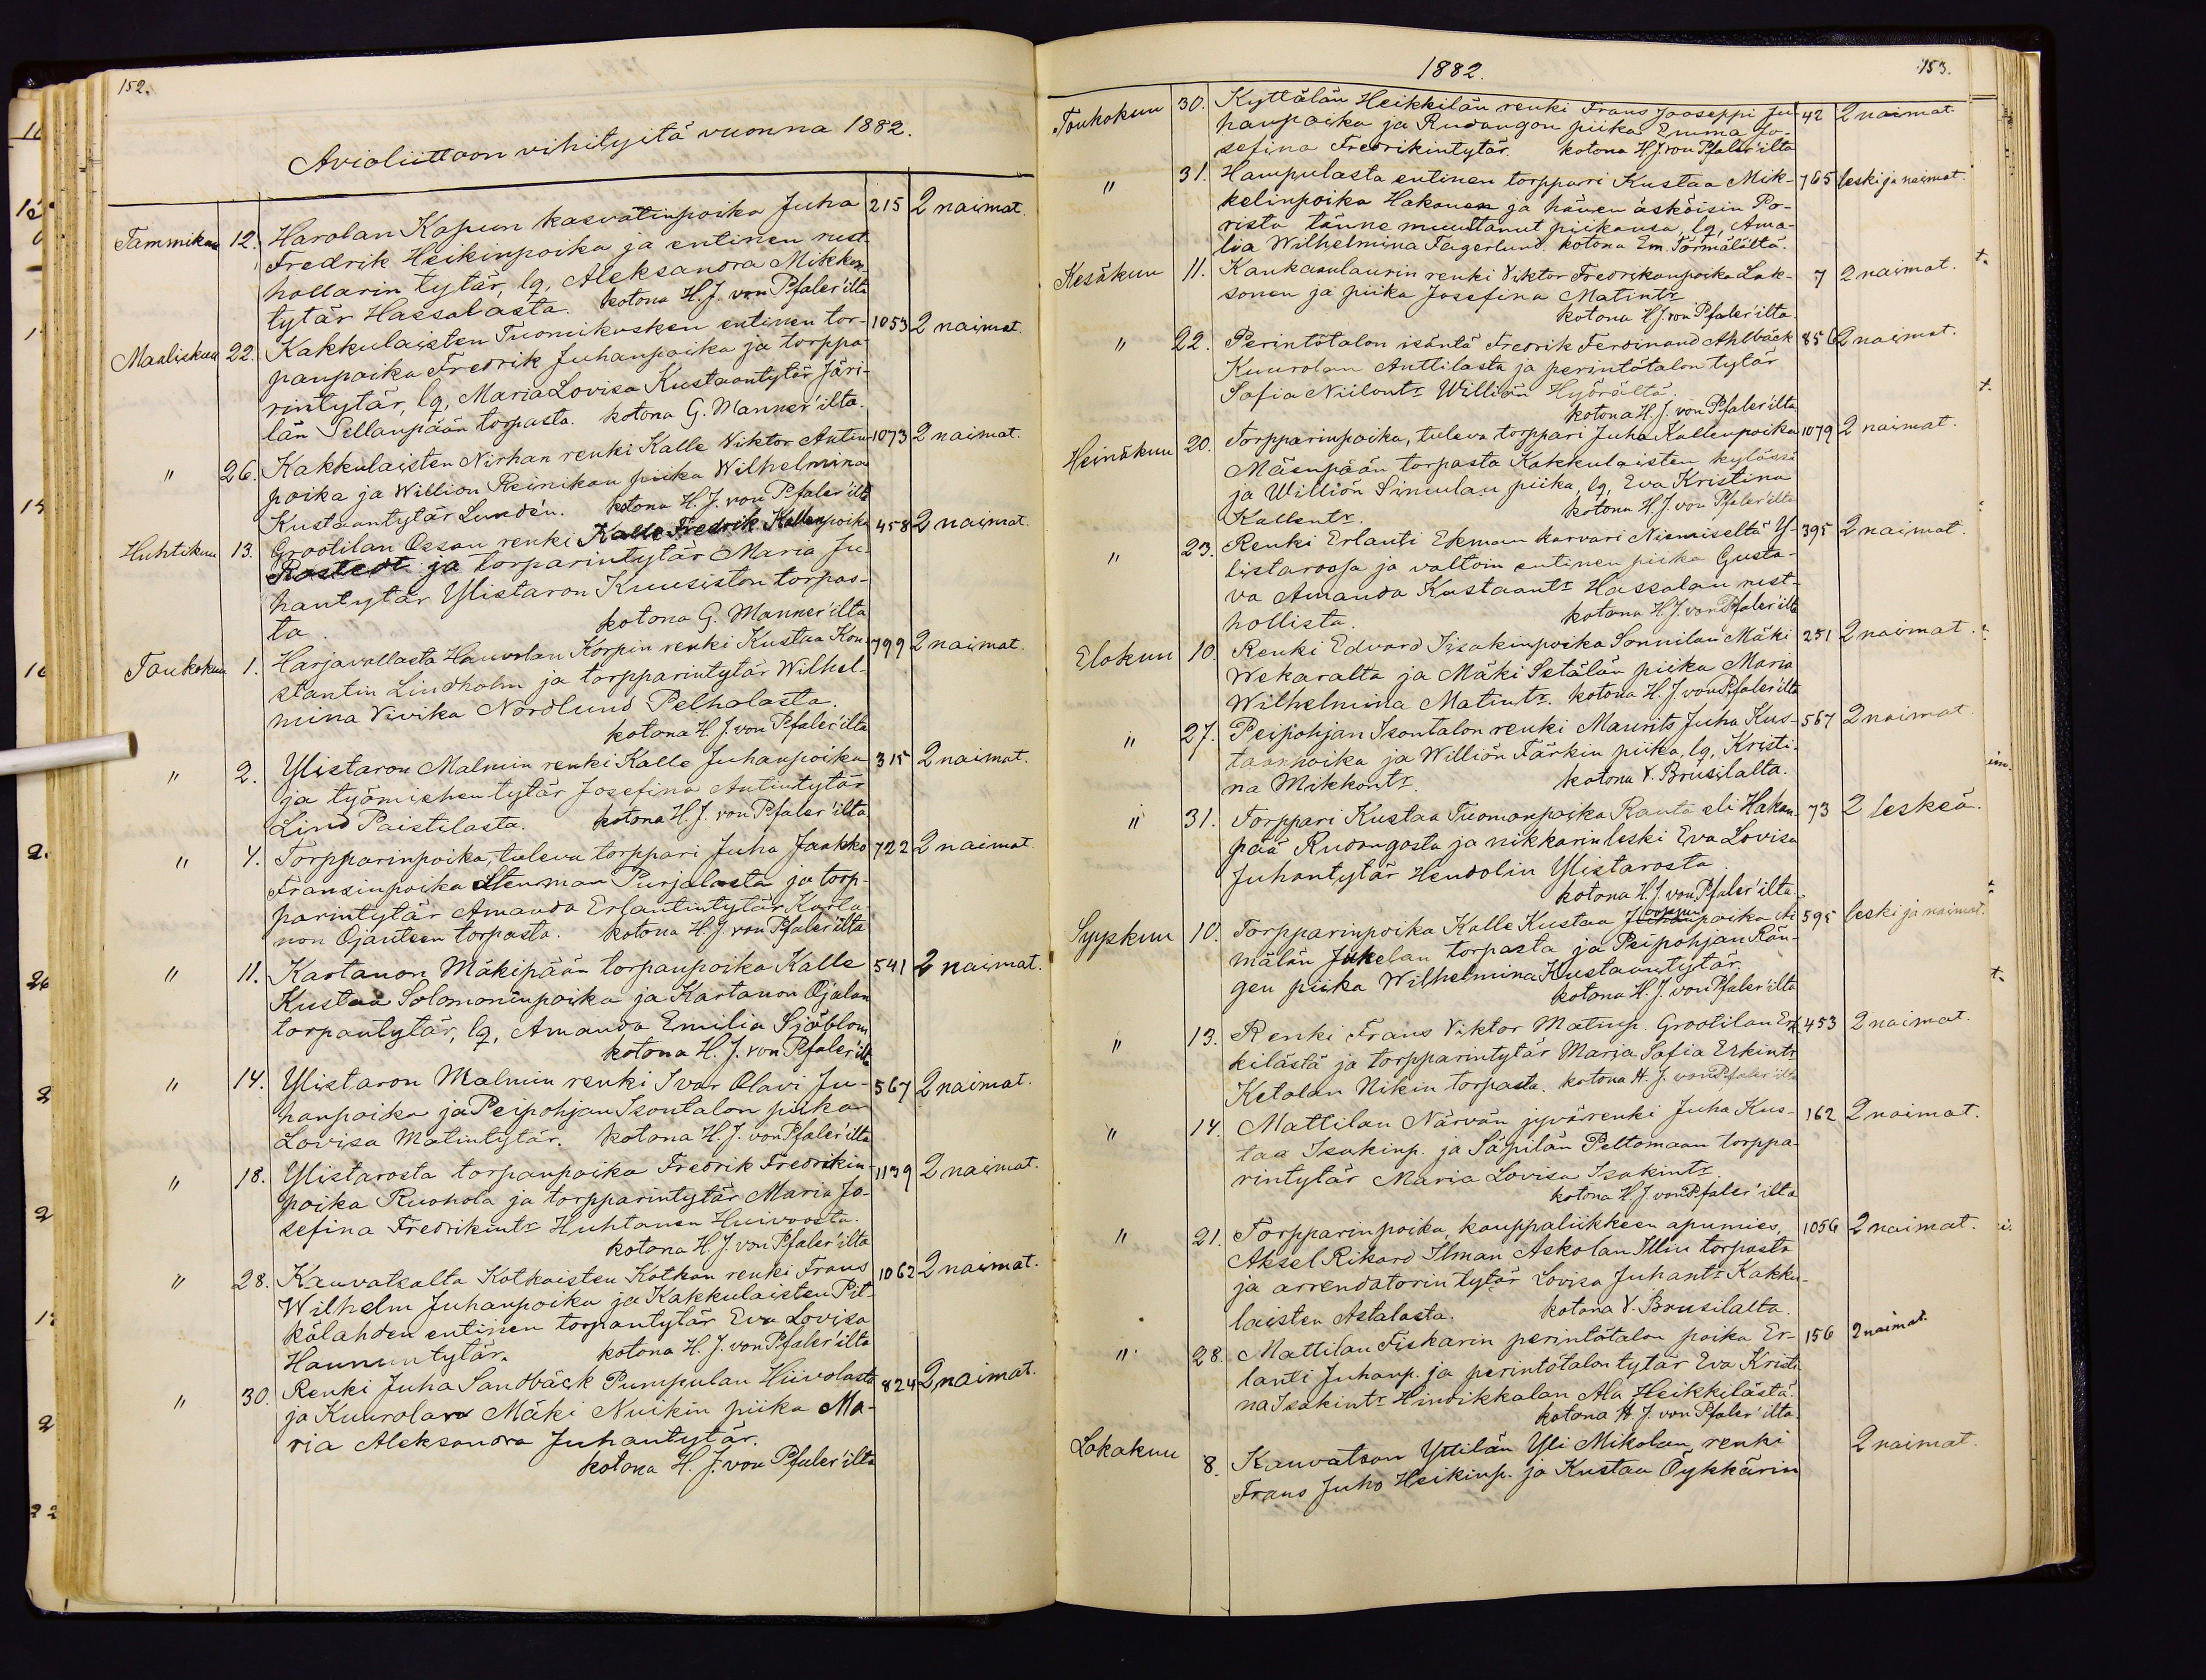 152.
Avioliittoon vihityitä vuonna 1882.
Tammikuu 12. Harolan Kapun kasvatinpoika Juha 215 2 naimat.
Fredrik Heikinpoika ja entinen rust-
hollarin tytär, lq, Aleksandra Mikkon-
tytär Hassalasta. kotona H. J. von Pfaler'ilta
Maaliskuu 22. Kakkulaisten Tuomikosken entinen tor- 1053 2 naimat.
panpoika Fredrik Juhanpoika ja torppa-
rintytär, lq, Maria Lovisa Kustaantytär Järi-
län Sillanpään torpasta. kotona G. Manner'ilta.
" 26. Kakkulaisten Nirhan renki Kalle Viktor Antin- 1073 2 naimat.
poika ja Willion Reinikan piika Wilhelmina
Kustaantytär Lundén. kotona H. J. von Pfaler'ilta
Huhtikuu 13. Grootilan Ossan renki Kalle Fredrik Kallenpoika 458 2 naimat.
Rostedt ja torparintytär Maria Ju-
hantytär Ylistaron Kuusiston torpas-
ta. kotona G. Manner'ilta
Toukokuu 1. Harjavallasta Hauvolan Korpin renki Kustaa Kon- 799 2 naimat.
stantin Lindholm ja torpparintytär Wilhel-
mina Vivika Nordlund Pelholasta.
kotona H. J. von Pfaler'ilta
" 2. Ylistaron Malmin renki Kalle Juhanpoika 315 2 naimat.
ja työmiehen tytär Josefina Antintytär
Lind Paistilasta. kotona H. J. von Pfaler'ilta
" 4. Torpparinpoika, tuleva torppari Juha Jaakko 722 2 naimat.
Fransinpoika Stenman Purjalasta ja torp-
parintytär Amanda Erlantintytär Karta-
non Ojanteen torpasta. kotona H. J. von Pfaler'ilta
" 11. Kartanon Mäkipään torpanpoika Kalle 541 2 naimat.
Kustaa Solomoninpoika ja Kartanon Ojalan
torpantytär, lq, Amanda Emilia Sjöblom
kotona H. J. von Pfaler'ilta
" 14. Ylistaron Malmin renki Ivar Olavi Ju- 567 2 naimat.
hanpoika ja Peipohjan Isontalon piika
Lovisa Matintytär. kotona H. J. von Pfaler'ilta
" 18. Ylistarosta torpanpoika Fredrik Fredrikin- 1139 2 naimat.
poika Ruohola ja torpparintytär Maria Jo-
sefina Fredrikintr Huhtanen Huivoosta.
kotona H. J. von Pfaler'ilta
" 28. Kauvatsalta Kotkaisten Kotkan renki Frans 1062 2 naimat.
Wilhelm Juhanpoika ja Kakkulaisten Pit-
kälahden entinen torpantytär Eva Lovisa
Hannuntytär. kotona H. J. von Pfaler'ilta
" 30. Renki Juha Sandbäck Pumpulan Hiivolasta 824 2 naimat.
ja Kuurolan Mäki Nuikin piika Ma-
ria Aleksandra Juhantytär.
kotona H. J. von Pfaler'ilta
1882. 153.
Toukokuu 30. Kyttälän Heikkilän renki Frans Jooseppi Ju- 42 2 naimat.
hanpoika ja Rudangon piika Emma Jo-
sefina Fredrikintytär. kotona H. J. von Pfaler'ilta
" 31. Hampulasta entinen torppari Kustaa Mik- 765 leski ja naimat.
kelinpoika Hakanen ja hänen äsköisin Po-
rista tänne muuttanut piikansa, lq, Ama-
lia Wilhelmina Fagerlund. kotona Em. Törmälältä.
Kesäkuu 11. Kankaanlaurin renki Viktor Fredrikanpoika Lak- 7 2 naimat.
sonen ja piika Josefina Matintr
kotona H. J. von Pfaler'ilta.
" 22. Perintötalon isäntä Fredrik Ferdinand Ahlbäck 856 2 naimat.
Kuurolan Anttilasta ja perintötalon tytär
Sofia Niilontr Williön Hyörältä.
kotona H. J. von Pfaler'ilta
Heinäkuu 20. Torpparinpoika, tuleva torppari Juha Kallenpoika 1079 2 naimat.
Mäenpään torpasta Kakkulaisten kylässä
ja Williön Simulan piika, lq, Eva Kristina
Kallentr. kotona H. J. von Pfaler'ilta
" 23. Renki Erlanti Ekman karvari Niemiseltä Y- 395 2 naimat.
listaroosa ja valtoin entinen piika Gusta-
va Amanda Kustaantr Hassalan rust-
hollista. kotona H. J. von Pfaler'ilta
Elokuu 10. Renki Edvard Iisakinpoika Sonnilan Mäki 251 2 naimat.
Wekaralta ja Mäki Setälän piika Maria
Wilhelmina Matintr. kotona H. J. von Pfaler'ilta
" 27. Peipohjan Isontalon renki Maurits Juha Kus- 567 2 naimat
taanpoika ja Williön Färkin piika, lq, Kristi-
na Mikkontr. kotona V. Brusilalta.
" 31. Torppari Kustaa Tuomanpoika Ranta eli Hakan- 73 2 leskeä.
pää Rudangosta ja nikkarin leski Eva Lovisa
Juhantytär Hendolin Ylistarosta.
kotona H. J. von Pfaler'ilta
Syyskuu 10. Torpparinpoika Kalle Kustaa poika 595 leski ja naimat.
mälän Jukelan torpasta ja Peipohjan Rän-
gen piika Wilhelmina Kustaantytär.
kotona H. J. von Pfaler'ilta
" 13. Renki Frans Viktor Matinp. Grootilan Erk- 453 2 naimat.
kilästä ja torpparintytär Maria Sofia Erkintr
Ketolan Nikin torpasta. kotona H. J. von Pfaler'ilta
" 14. Mattilan Närvän jyvärenki Juha Kus- 162 2 naimat.
taa Isakinp. ja Säpilän Peltomaan torppa-
rintytär Maria Lovisa Isakintr.
kotona H. J. von Pfaler'ilta
" 21. Torpparinpoika, kauppaliikkeen apumies, 1056 2 naimat.
Aksel Rikard Ilman Askolan Illin torpasta
ja arrendatorin tytär Lovisa Juhantr Kakku-
laisten Astalasta. kotona V. Brusilalta.
" 28. Mattilan Fiskarin perintötalon poika Er- 156 2 naimat.
lanti Juhanp. ja perintötalon tytär Eva Kristi-
na Isakintr Hindikkalan Ala Heikkilästä.
kotona H. J. von Pfaler'ilta.
Lokakuu 8. Kauvatsan Yttilän Yli Mikolan renki 2 naimat.
Frans Juho Heikinp. ja Kustaa Öykkärin